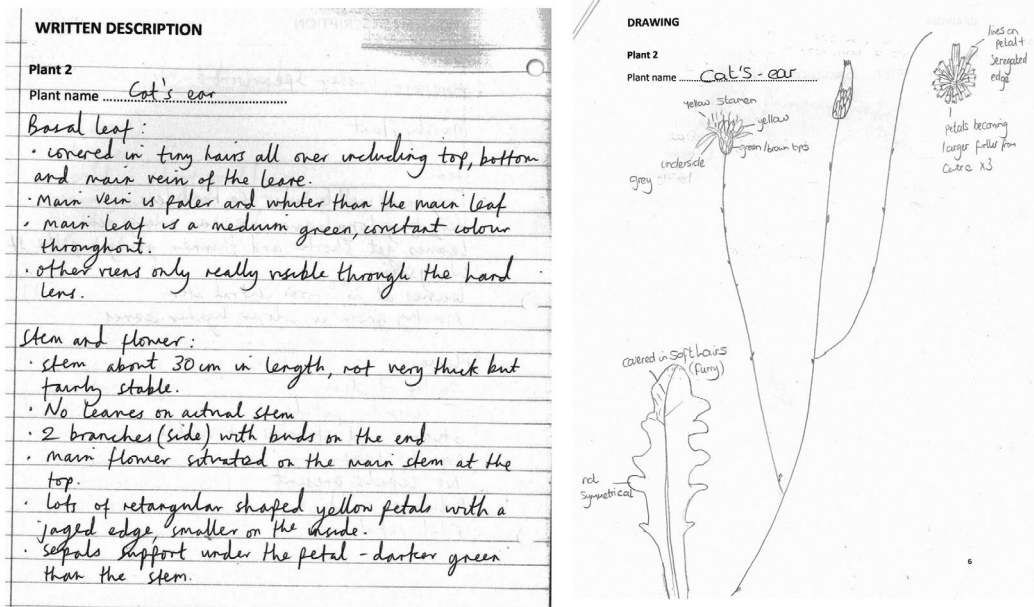 WRITTEN DESCRIPTION
Plant 2
Plant name Cat's ear
Basal leaf :
• covered in tiny hairs all over including top, bottom
and main vein of the leave.
• Main vein is paler and whiter than the main leaf
• main leaf is a medium green, constant colour
throughout.
• other viens only really visible through the hand
lens.
Stem and flower :
• stem about 30cm in length, not very thick but
fairly stable.
• No leaves on actual stem
• 2 branches (side) with buds on the end
• main flower situated on the main stem at the
top.
• lots of retangular shaped yellow petals with a
jaged edge, smaller on the inside.
• sepals support under the petal - darker green
than the stem.
DRAWING
Plant 2
Plant name Cat's - ear
yellow stamen
yellow
green/brown tips
underside
grey
lines on
petal +
seregated
edge
petals becoming
larger fuller from
centre x3
covered in soft hairs
(furry)
not
symmetrical
6